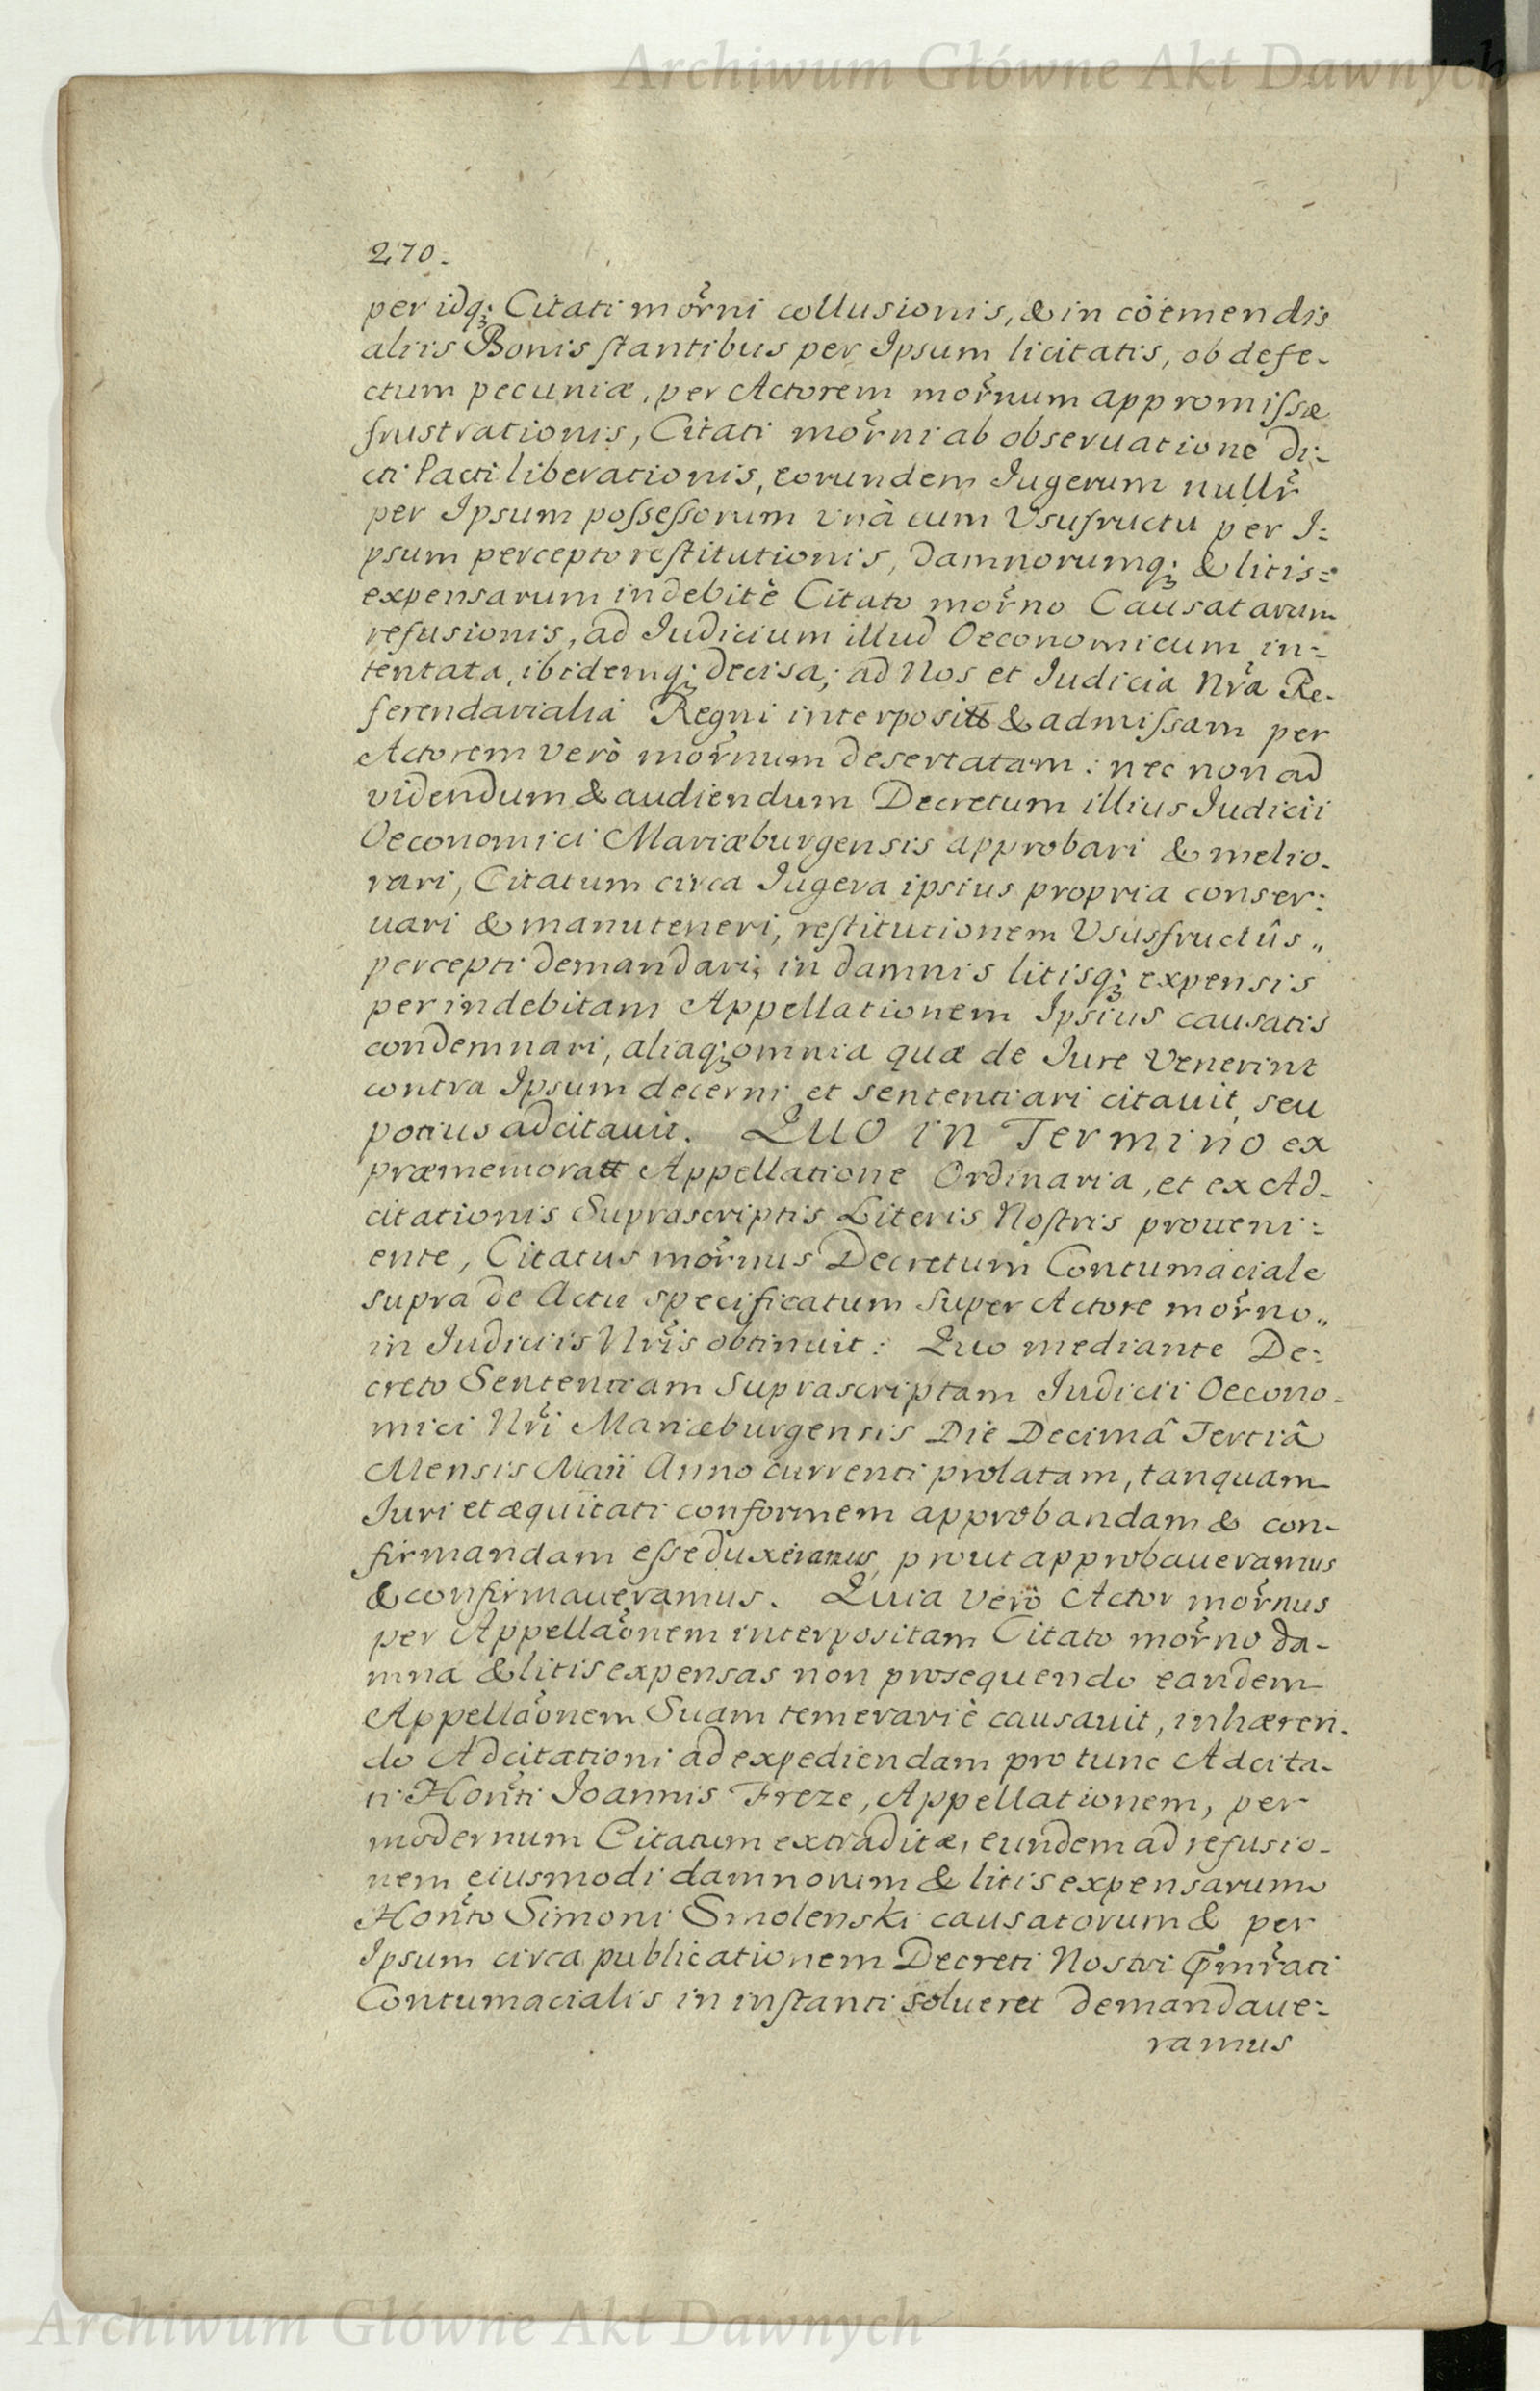 Archiwum Główne Akt Dawnych
270.
per idq; Citati mor̃ni collusionis, & in cöemendis
aliis Bonis ſtantibus per Ipsum licitatis, ob defe-
ctum pecuniæ, per Actorem mor̃num appromiſsæ
frustrationis, Citati mor̃ni ab obseruatione di-
cti Pacti liberationis, eorundem Iugerum nullr̃
per Ipsum poſseſsorum vnà cum Vsufructu per I:
psum percepto reſtitutionis, damnorumq; & litis=
expensarum indebitè Citato mor̃no Causatarum
refusionis, ad Iudicium illud Oeconomicum in:
tentata, ibidemq; decisa; ad Nos et Iudicia Nr̃a Re-
ferendarialia Regni interposi̅t̅t̅ & admiſsam per
Actorem verò mor̃num desertatam: nec non ad
videndum & audiendum Decretum illius Iudicii
Oeconomici Mariæburgensis approbari & melio-
rari, Citatum circa Iugera ipsius propria conser:
uari & manuteneri, reſtitutionem Vsûsfructûs„
percepti demandari; in damnis litisq; expensis
per indebitam Appellationem Ipsius causatis
condemnari, aliaq; omnia quæ de Iure Venerint
contra Ipsum decerni et sententiari citauit seu
potius adcitauit. QUO in Termino ex
præmemoratt Appellatione Ordinaria, et ex Ad-
citationis Suprascriptis Literis Noſtris proueni:
ente, Citatus mor̃nus Decretum Contumaciale
supra de Actu specificatum super Actore mor̃no„
in Iudiciis Nr̃is obtinuit: Quo mediante De:
creto Sententiam Suprascriptam Iudicii Oecono-
mici Nr̃i Mariæburgensis Die Decimâ Tertiâ
Mensis Maii Anno currenti prolatam, tanquam
Iuri et æquitati conformem approbandam & con-
firmandam eſse duxeramus, prout approbaueramus
& confirmaueramus. Quia verò Actor mor̃nus
per Appella͠onem interpositam Citato mor̃no da-
mna & litis expensas non prosequendo eandem
Appella͠onem Suam temerariè causauit, inhæren-
do Adcitationi ad expediendam pro tunc Adcita-
ti Hon͠ti Ioannis Freze, Appellationem, per
modernum Citatum extraditæ, eundem ad refusio-
nem eiusmodi damnorum & litis expensarum
Hon͠to Simoni Smolenski causatorum & per
Ipsum circa publicationem Decreti Nostri p̃mr̃ati
Contumacialis in inſtanti solueret demandaue:
ramus
Archiwum Główne Akt Dawnych